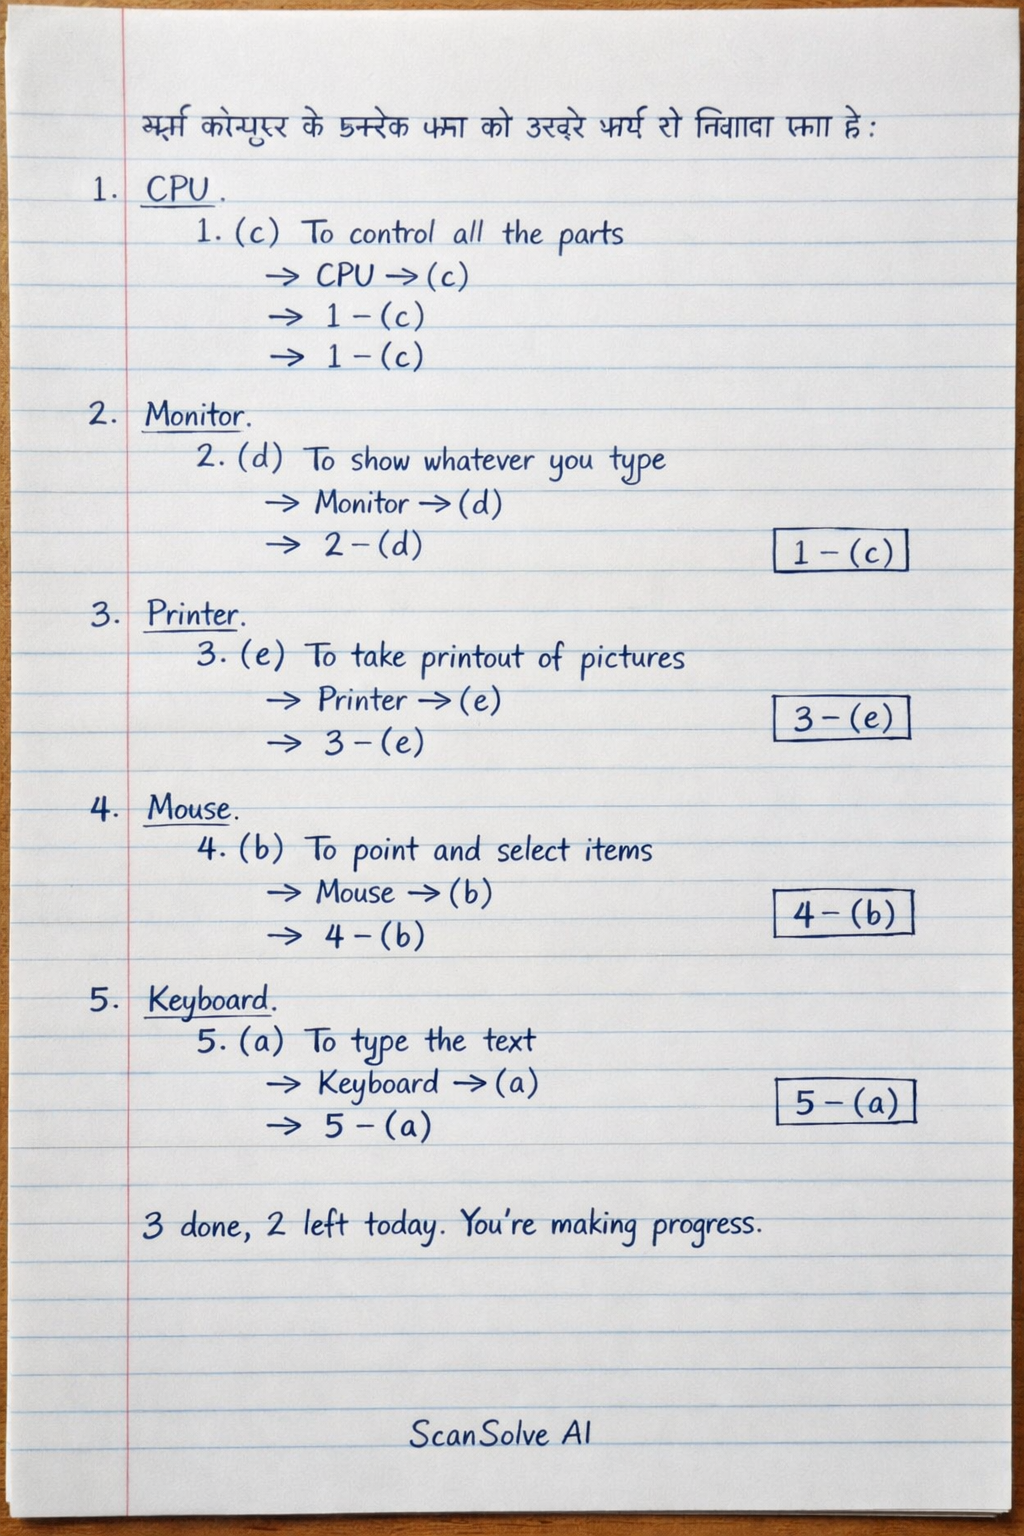 कोन्पुटर के को हे :
1. CPU.
1. (c) To control all the parts
→ CPU → (c)
→ 1 – (c)
→ 1 – (c)
2. Monitor.
2. (d) To show whatever you type
→ Monitor → (d)
→ 2 – (d)
1 – (c)
3. Printer.
3. (e) To take printout of pictures
→ Printer → (e)
→ 3 – (e)
3 – (e)
4. Mouse.
4. (b) To point and select items
→ Mouse → (b)
→ 4 – (b)
4 – (b)
5. Keyboard.
5. (a) To type the text
→ Keyboard → (a)
→ 5 – (a)
5 – (a)
3 done, 2 left today. You're making progress.
ScanSolve AI